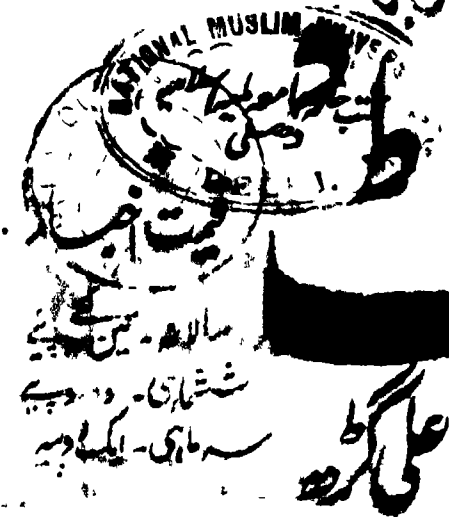 NATIONAL MUSLIM UNIVERS
جامعہ ملیہ اسلامیہ
دھلی
DELHI.
قیمت اخبار
سالانہ - تین روپیے
ششماہی - دو روپیے
سہ ماہی - ایک روپیہ
علی گڑھ